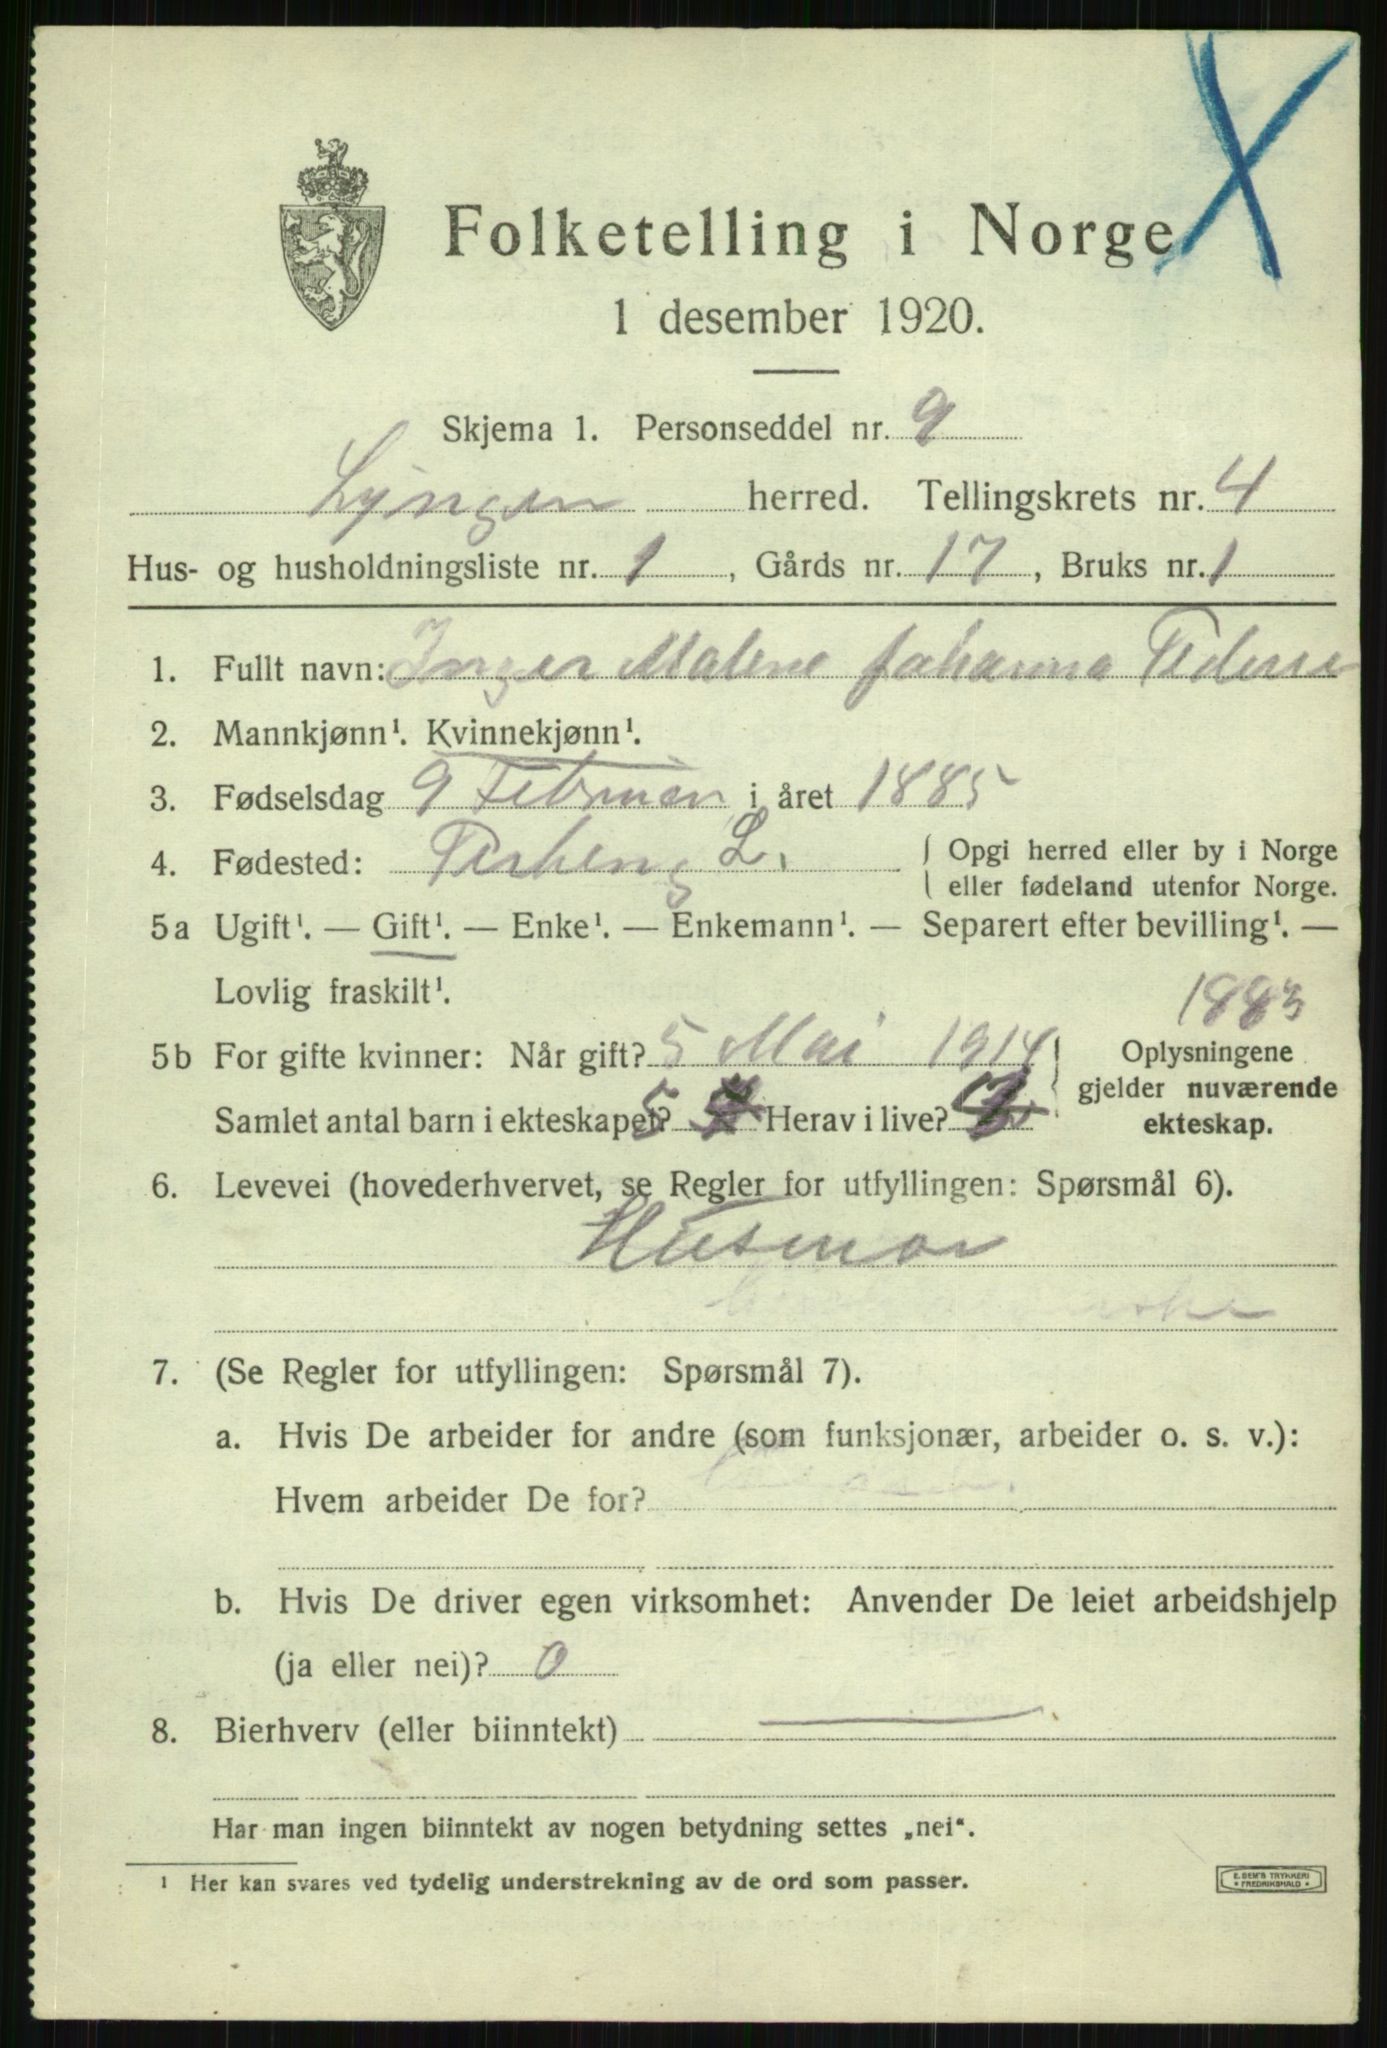 Folketelling i Norge
1 desember 1920.
Skjema 1. Personseddel nr. 9
Lyngen herred. Tellingskrets nr. 4
Hus- og husholdningsliste nr. 1, Gårds nr. 17, Bruks nr. 1
1. Fullt navn: Inger Malene Johanna
2. Mannkjønn¹. Kvinnekjønn¹.
3. Fødselsdag 9 Februar i året 1885
4. Fødested: L. { Opgi herred eller by i Norge
eller fødeland utenfor Norge.
5a Ugift¹. — Gift¹. — Enke¹. — Enkemann¹. — Separert efter bevilling¹. —
Lovlig fraskilt¹.
1883
5b For gifte kvinner: Når gift? 5 Mai 1914 } Oplysningene
gjelder nuværende
Samlet antal barn i ekteskapet? 5 Herav i live?
ekteskap.
6. Levevei (hovederhvervet, se Regler for utfyllingen: Spørsmål 6).
Husmor
7. (Se Regler for utfyllingen: Spørsmål 7).
a. Hvis De arbeider for andre (som funksjonær, arbeider o. s. v.):
Hvem arbeider De for?
b. Hvis De driver egen virksomhet: Anvender De leiet arbeidshjelp
(ja eller nei)? 0
8. Bierhverv (eller biinntekt) —
Har man ingen biinntekt av nogen betydning settes „nei“.
¹ Her kan svares ved tydelig understrekning av de ord som passer.
E. SEM'S TRYKKERI
* FREDRIKSHALD *